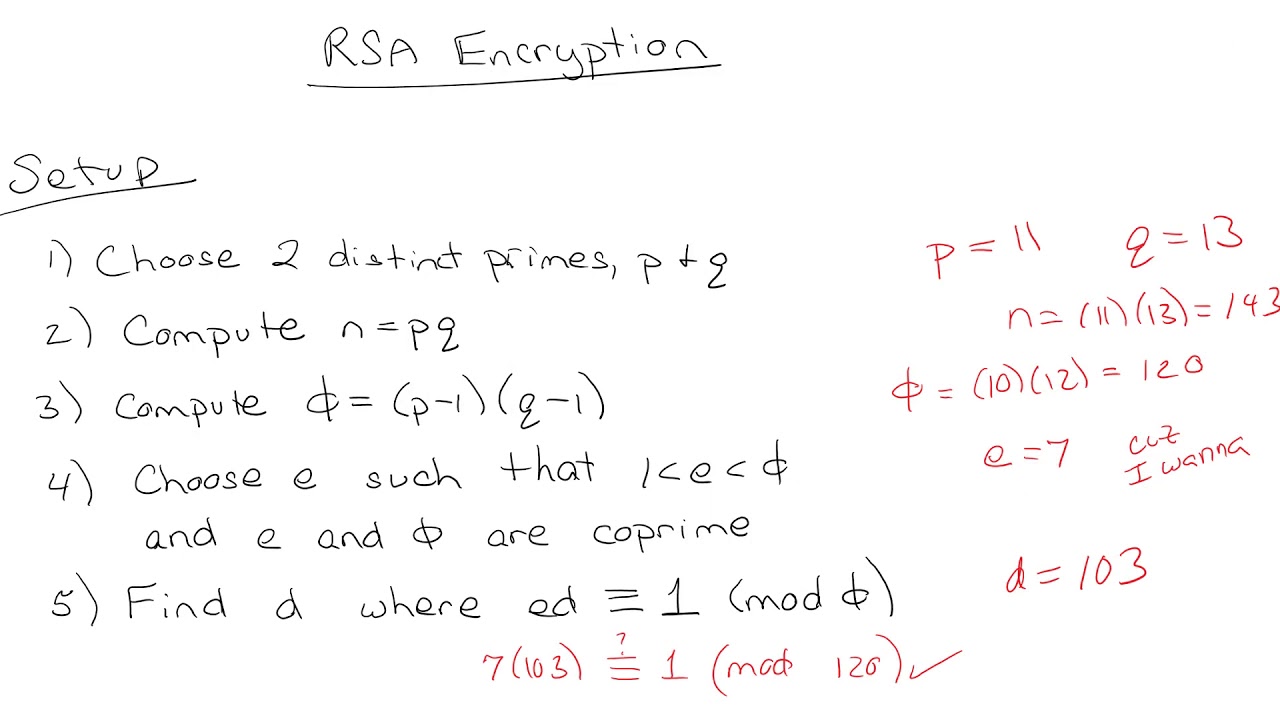 RSA Encryption
Setup
1) Choose 2 distinct primes, p + q
2) Compute n = pq
3) Compute ϕ = (p-1)(q-1)
4) Choose e such that 1 < e < ϕ
and e and ϕ are coprime
5) Find d where ed ≡ 1 (mod ϕ)
7(103) ≡ 1 (mod 120) ✓
?
p = 11 q = 13
n = (11)(13) = 143
ϕ = (10)(12) = 120
e = 7 cuz
I wanna
d = 103